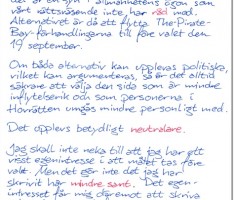 det är en syn i allmänhetens ögon som
vårt rättsväsende inte har råd med.
Alternativet är då att flytta The Pirate
Bay-förhandlingarna till före valet den
19 september.
Om båda alternativ kan upplevas politiska,
vilket kan argumenteras, så är det alltid
säkrare att välja den sida som är mindre
inflytelserik och som personerna i
Hovrätten umgås mindre personligt med.
Det upplevs betydligt neutralare.
Jag skall inte neka till att jag har ett
visst egenintresse i att målet tas före
valet. Men det gör inte det jag har
skrivit här mindre sant. Det egen-
intresset får mig däremot att skriva